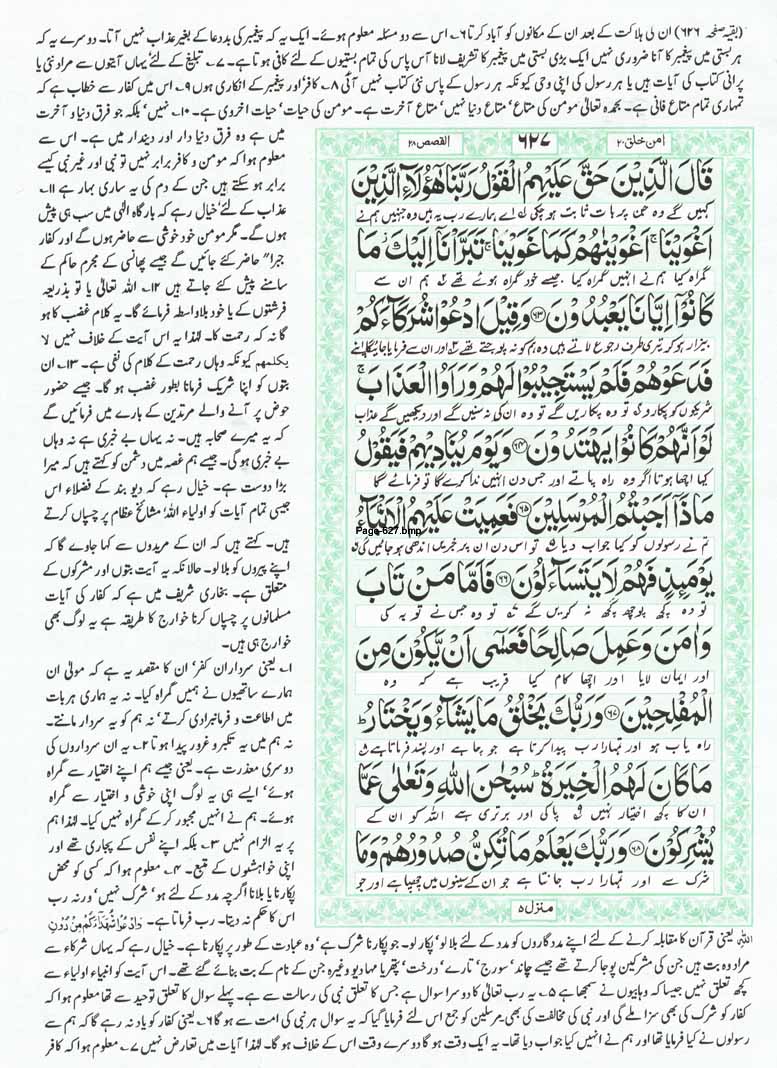 (بقیہ صفحہ ۶۲۶) ان کی ہلاکت کے بعد ان کے مکانوں کو آباد کرتا ۶؎ اس سے دو مسئلہ معلوم ہوئے۔ ایک یہ کہ پیغمبر کی بددعا کے بغیر عذاب نہیں آتا۔ دوسرے یہ کہ
ہر بستی میں پیغمبر کا آنا ضروری نہیں ایک بڑی بستی میں پیغمبر کا تشریف لانا آس پاس کی تمام بستیوں کے لئے کافی ہوتا ہے۔ ۷؎ تبلیغ کے لئے یہاں آیتوں سے مراد نئی یا
پرانی کتاب کی آیات ہیں یا ہر رسول کی اپنی وحی کیونکہ ہر رسول کے پاس نئی کتاب نہیں آئی ۸؎ کافر اور پیغمبر کے انکاری ہوں ۹؎ اس میں کفار سے خطاب ہے کہ
تمہاری تمام متاع فانی ہے۔ بحمدہ تعالیٰ مومن کی متاع' متاع دنیا نہیں' متاع آخرت ہے۔ مومن کی حیات' حیات اخروی ہے۔ ۱۰؎ نہیں' بلکہ جو فرق دنیا و آخرت
میں ہے وہ فرق دنیا دار اور دیندار میں ہے۔ اس سے
معلوم ہوا کہ مومن و کافر برابر نہیں تو نبی اور غیر نبی کیسے
برابر ہو سکتے ہیں جن کے دم کی یہ ساری بہار ہے ۱۱؎
عذاب کے لئے' خیال رہے کہ بارگاہ الٰہی میں سب ہی پیش
ہوں گے۔ مگر مومن خود خوشی سے حاضر ہوں گے اور کفار
جبراً" حاضر کئے جائیں گے جیسے پھانسی کے مجرم حاکم کے
سامنے پیش کئے جاتے ہیں ۱۲؎ اللہ تعالیٰ یا تو بذریعہ
فرشتوں کے یا خود بلاواسطہ فرمائے گا۔ یہ کلام غضب کا ہو
گا نہ کہ رحمت کا۔ لہٰذا یہ اس آیت کے خلاف نہیں لا
یکلمھم کیونکہ وہاں رحمت کے کلام کی نفی ہے۔ ۱۳؎ ان
بتوں کو اپنا شریک فرمانا بطور غضب ہو گا۔ جیسے حضور
حوض پر آنے والے مرتدین کے بارے میں فرمائیں گے
کہ یہ میرے صحابہ ہیں۔ نہ یہاں بے خبری ہے نہ وہاں
بے خبری ہو گی۔ جیسے ہم غصہ میں دشمن کو کہتے ہیں کہ میرا
بڑا دوست ہے۔ خیال رہے کہ دیو بند کے فضلاء اس
جیسی تمام آیات کو اولیاء اللہ' مشائخ عظام پر چسپاں کرتے
ہیں۔ کہتے ہیں کہ ان کے مریدوں سے کہا جاوے گا کہ
اپنے پیروں کو بلا لو۔ حالانکہ یہ آیت بتوں اور مشرکوں کے
متعلق ہے۔ بخاری شریف میں ہے کہ کفار کی آیات
مسلمانوں پر چسپاں کرنا خوارج کا طریقہ ہے یہ لوگ بھی
خوارج ہی ہیں۔
۱؎ یعنی سرداران کفر' ان کا مقصد یہ ہے کہ مولیٰ ان
ہمارے ساتھیوں نے ہمیں گمراہ کیا۔ نہ یہ ہماری ہر بات
میں اطاعت و فرمانبرداری کرتے' نہ ہم کو یہ سردار مانتے۔
نہ ہم میں یہ تکبر و غرور پیدا ہوتا ۲؎ یہ ان سرداروں کی
دوسری معذرت ہے۔ یعنی جیسے ہم اپنے اختیار سے گمراہ
ہوئے' ایسے ہی یہ لوگ اپنی خوشی و اختیار سے گمراہ
ہوئے۔ ہم نے انہیں مجبور کر کے گمراہ نہیں کیا۔ لہٰذا ہم
پر یہ الزام نہیں ۳؎ بلکہ اپنے نفس کے پجاری تھے اور
اپنی خواہشوں کے متبع۔ ۴؎ معلوم ہوا کہ کسی کو محض
پکارنا یا بلانا اگرچہ مدد کے لئے ہو' شرک نہیں' ورنہ رب
اس کا حکم نہ دیتا۔ رب فرماتا ہے۔ وَادْعُوْا شُهَدَآءَكُمْ مِنْ دُوْنِ
امن خلق ۲۰
۶۲۷
القصص ۲۸
قَالَ الَّذِيْنَ حَقَّ عَلَيْهِمُ الْقَوْلُ رَبَّنَا هٰٓؤُلَآءِ الَّذِيْنَ
کہیں گے وہ جن پر بات ثابت ہو چکی ل اے ہمارے رب یہ ہیں وہ جنہیں ہم نے
اَغْوَيْنَا ۚ اَغْوَيْنٰهُمْ كَمَا غَوَيْنَا ۚ تَبَرَّاْنَاۤ اِلَيْكَ ؗ مَا
گمراہ کیا ہم نے انہیں گمراہ کیا جیسے خود گمراہ ہوئے تھے ۲ ہم ان سے
كَانُوْۤا اِيَّانَا يَعْبُدُوْنَ ﴿۶۳﴾ وَقِيْلَ ادْعُوْا شُرَكَآءَكُمْ
بیزار ہو کر تیری طرف رجوع لاتے ہیں وہ ہم کو نہ پوجتے تھے ۳ اور ان سے فرمایا جائیگا اپنے
فَدَعَوْهُمْ فَلَمْ يَسْتَجِيْبُوْا لَهُمْ وَرَاَوُا الْعَذَابَ ۚ
شریکوں کو پکارو ۴ تو وہ پکاریں گے تو وہ ان کی نہ سنیں گے اور دیکھیں گے عذاب
لَوْ اَنَّهُمْ كَانُوْا يَهْتَدُوْنَ ﴿۶۴﴾ وَيَوْمَ يُنَادِيْهِمْ فَيَقُوْلُ
کیا اچھا ہوتا اگر وہ راہ پاتے اور جس دن انہیں ندا کرے گا تو فرمائے گا
مَاذَاۤ اَجَبْتُمُ الْمُرْسَلِيْنَ ﴿۶۵﴾ فَعَمِيَتْ عَلَيْهِمُ الْاَنْۢبَآءُ
Page-627.bmp
تم نے رسولوں کو کیا جواب دیا ۵ تو اس دن ان پر خبریں اندھی ہو جائیں گی
يَوْمَئِذٍ فَهُمْ لَا يَتَسَآءَلُوْنَ ﴿۶۶﴾ فَاَمَّا مَنْ تَابَ
تو وہ کچھ پوچھ گچھ نہ کریں گے تو وہ جس نے توبہ کی
وَاٰمَنَ وَعَمِلَ صَالِحًا فَعَسٰۤى اَنْ يَّكُوْنَ مِنَ
اور ایمان لایا اور اچھا کام کیا قریب ہے کہ وہ
الْمُفْلِحِيْنَ ﴿۶۷﴾ وَرَبُّكَ يَخْلُقُ مَا يَشَآءُ وَيَخْتَارُ ؕ
راہ یاب ہو اور تمہارا رب پیدا کرتا ہے جو چاہے اور پسند فرماتا ہے
مَا كَانَ لَهُمُ الْخِيَرَةُ ؕ سُبْحٰنَ اللّٰهِ وَتَعٰلٰى عَمَّا
ان کا کچھ اختیار نہیں پاکی اور برتری ہے اللہ کو ان کے
يُشْرِكُوْنَ ﴿۶۸﴾ وَرَبُّكَ يَعْلَمُ مَا تُكِنُّ صُدُوْرُهُمْ وَمَا
شرک سے اور تمہارا رب جانتا ہے جو ان کے سینوں میں چھپا ہے اور جو
منزل ۵
اللہِ یعنی قرآن کا مقابلہ کرنے کے لئے اپنے مددگاروں کو مدد کے لئے بلا لو' پکار لو۔ جو پکارنا شرک ہے' وہ عبادت کے طور پر پکارنا ہے۔ خیال رہے کہ یہاں شرکاء سے
مراد وہ بت ہیں جن کی مشرکین پوجا کرتے تھے جیسے چاند' سورج' تارے' درخت' پتھر یا مہادیو وغیرہ جن کے نام کے بت بنائے گئے تھے۔ اس آیت کو انبیاء اولیاء سے
کچھ تعلق نہیں جیسا کہ وہابیوں نے سمجھا ہے ۵؎ یہ رب تعالیٰ کا دوسرا سوال ہے جس کا تعلق نبی کی رسالت سے ہے۔ پہلے سوال کا تعلق توحید سے تھا معلوم ہوا کہ
کفار کو شرک کی بھی سزا ملے گی اور نبی کی مخالفت کی بھی۔ مرسلین کو جمع اس لئے فرمایا گیا کہ یہ سوال ہر نبی کی امت سے ہو گا ۶؎ یعنی کفار کو یاد نہ رہے گا کہ ہم سے
رسولوں نے کیا فرمایا تھا اور ہم نے انہیں کیا جواب دیا تھا۔ یہ ایک وقت ہو گا دوسرے وقت اس کے خلاف ہو گا۔ لہٰذا آیات میں تعارض نہیں ۷؎ معلوم ہوا کہ کافر